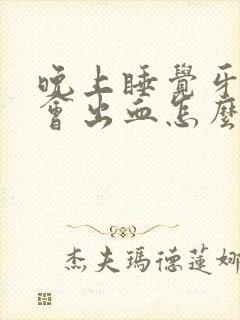 晚上睡覺牙
會出血怎麼
杰夫瑪德蓮娜